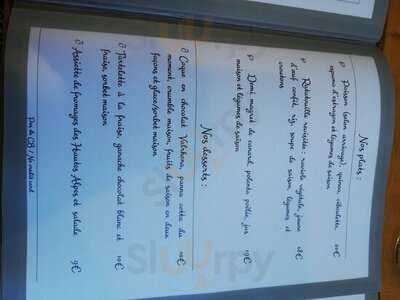 Nos plats :
Poisson (selon arrivage), quinoa, ciboulette, 20€
espuma d'estragon et légumes de saison
Ratatouille revisitée : raviole végétale, jaune 18€
d'œuf confit, riz soupe de saison, légumes et
croutons
Demi magret de canard, polenta poêlée, jus 19€
maison et légumes de saison
Nos desserts :
Coque en chocolat Valrhona, panna cotta du 10€
moment, crumble maison, fruits de saison en deux
façons et glace/sorbet maison
Tartelette à la fraise, ganache chocolat blanc et 10€
fraise, sorbet maison
Assiette de fromages des Hautes Alpes et salade 9€
Pas de CB / No credit card
Sluurpy